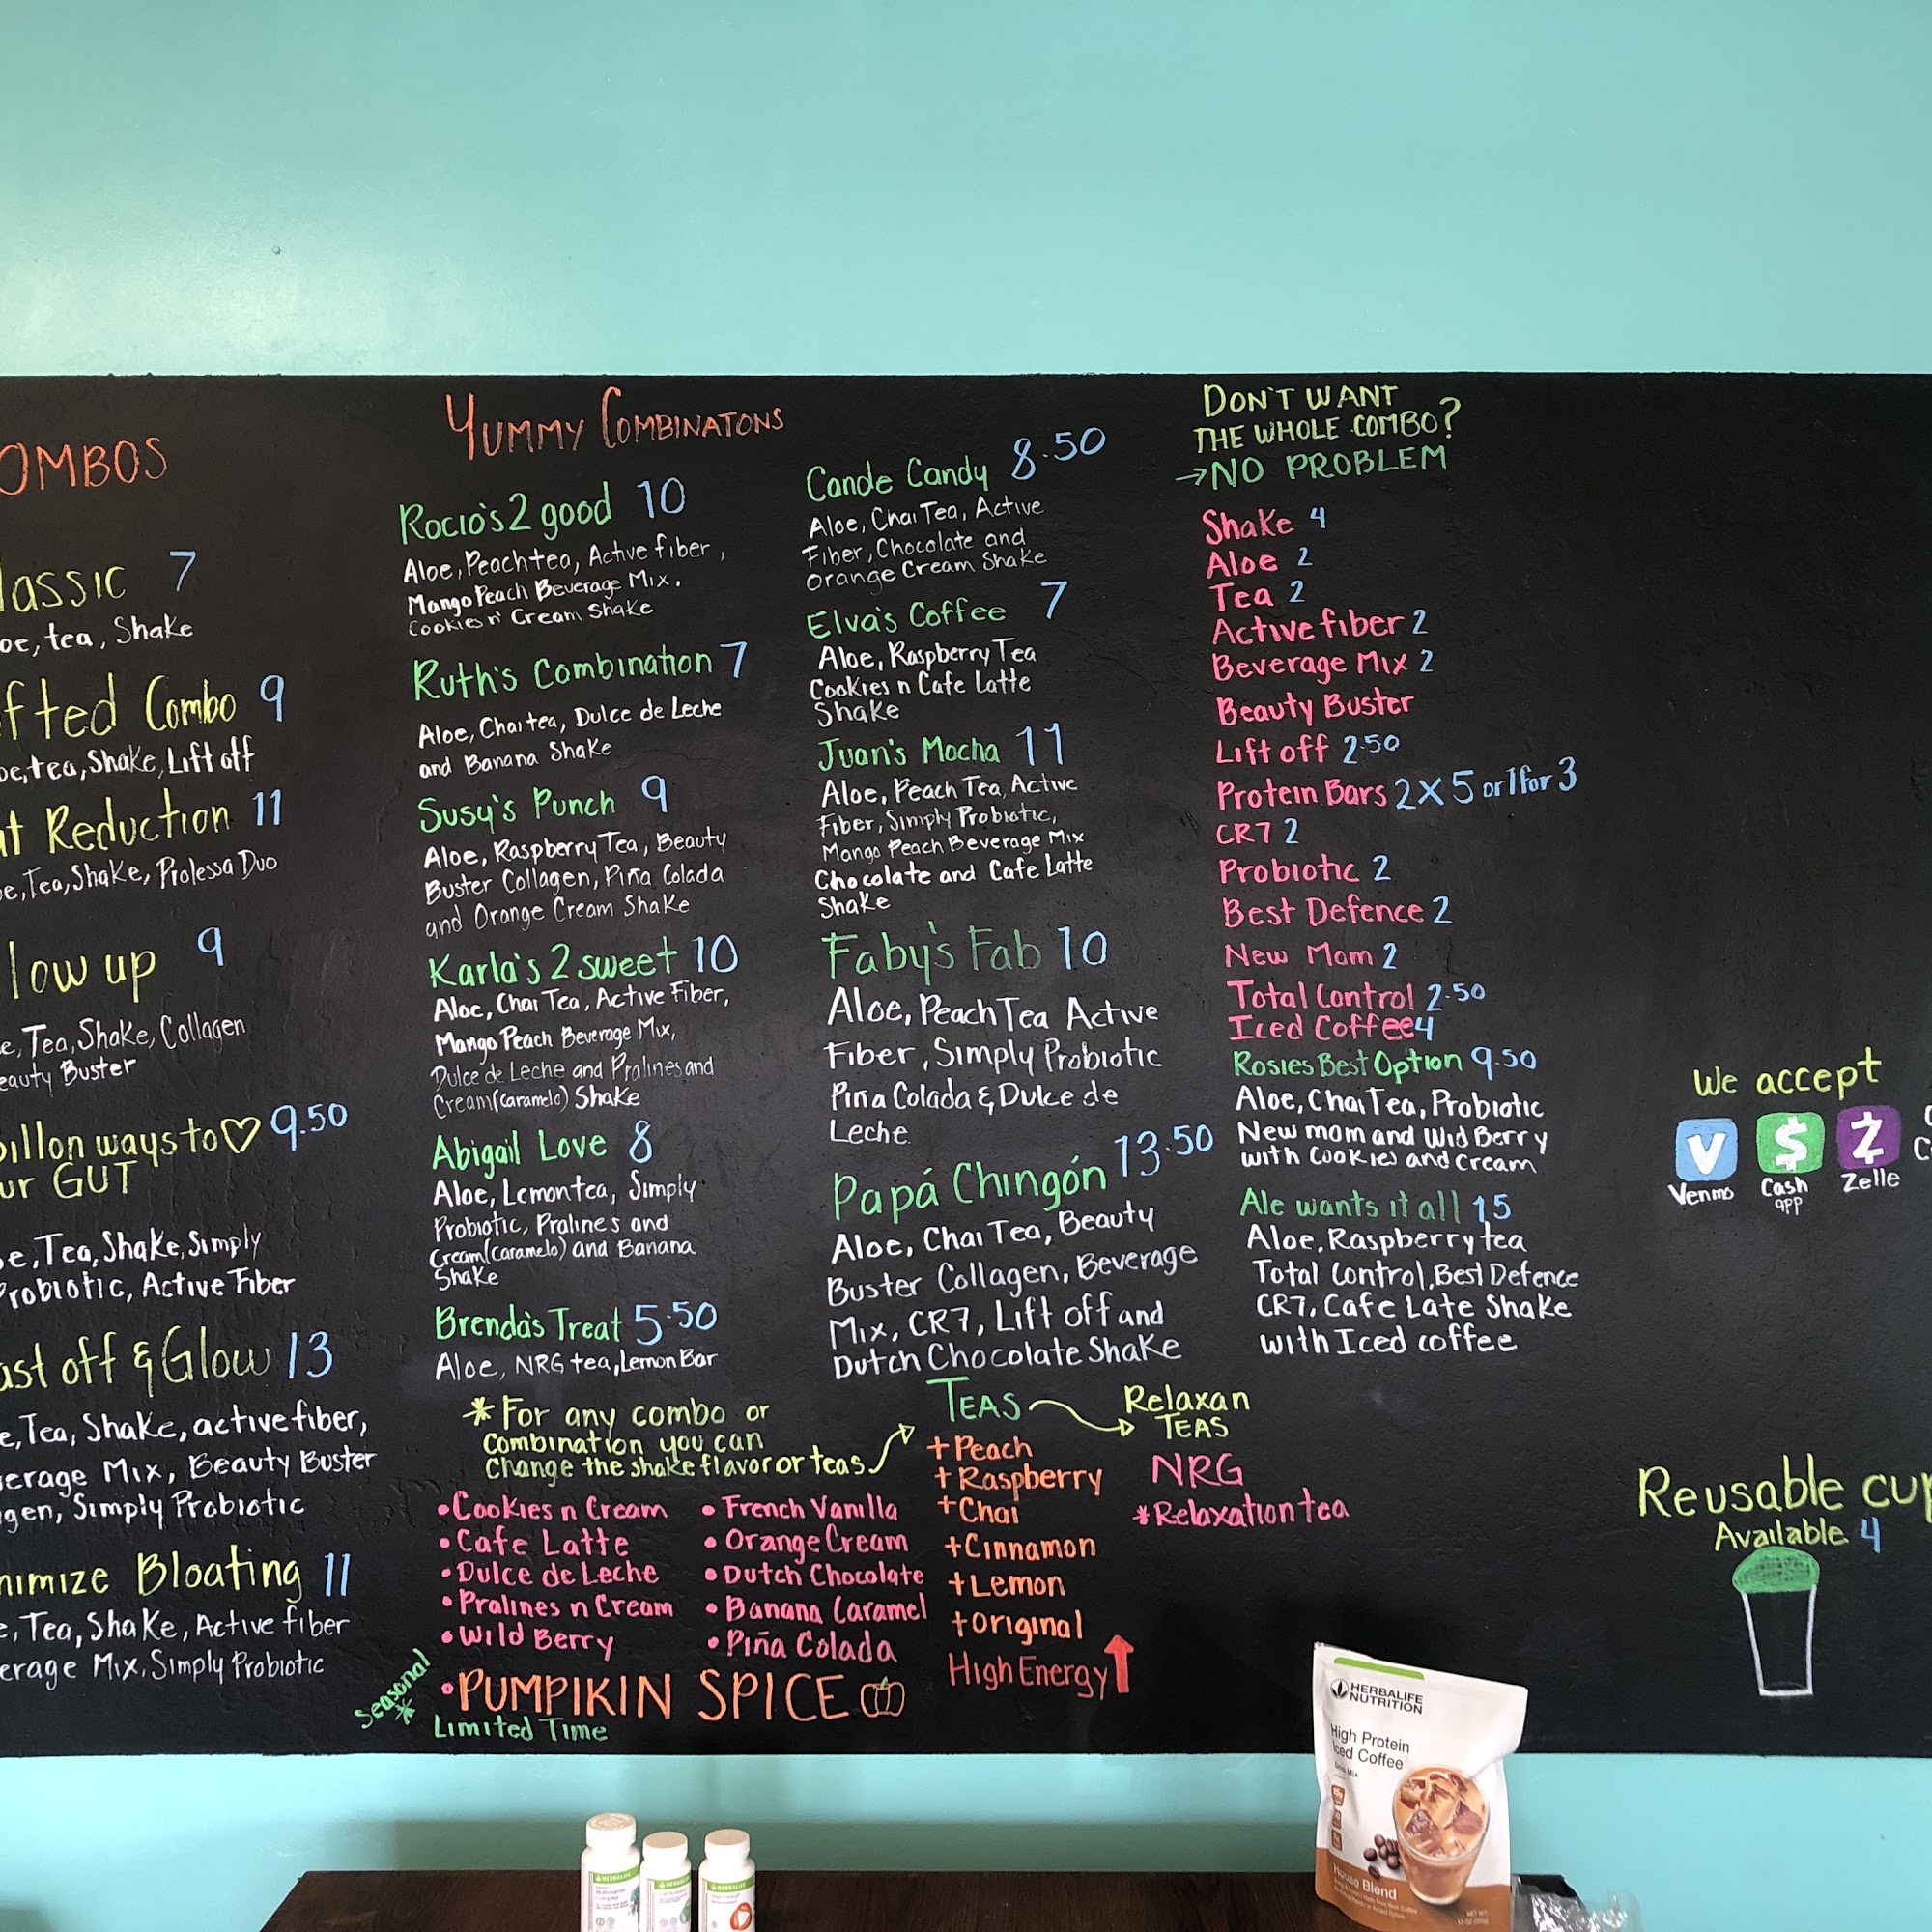 OMBOS
lassic 7
oe, tea, Shake
fted Combo 9
oe, tea, Shake, Lift off
at Reduction 11
oe, Tea, Shake, Prolessa Duo
low up 9
e, Tea, Shake, Collagen
eauty Buster
billon ways to ♡ 9.50
ur GUT
oe, Tea, Shake, Simply
Probiotic, Active Fiber
ast off & Glow 13
e, Tea, Shake, active fiber,
verage Mix, Beauty Buster
agen, Simply Probiotic
nimize Bloating 11
e, Tea, Shake, Active fiber
erage Mix, Simply Probiotic
YUMMY COMBINATONS
Rocio's 2 good 10
Aloe, Peach tea, Active fiber,
Mango Peach Beverage Mix,
Cookies n' Cream Shake
Ruth's Combination 7
Aloe, Chai tea, Dulce de Leche
and Banana Shake
Susy's Punch 9
Aloe, Raspberry Tea, Beauty
Buster Collagen, Piña Colada
and Orange Cream Shake
Karla's 2 sweet 10
Aloe, Chai Tea, Active Fiber,
Mango Peach Beverage Mix,
Dulce de Leche and Pralines and
Cream (caramelo) Shake
Abigail Love 8
Aloe, Lemon tea, Simply
Probiotic, Pralines and
Cream (caramelo) and Banana
Shake
Brenda's Treat 5.50
Aloe, NRG tea, Lemon Bar
Cande Candy 8.50
Aloe, Chai Tea, Active
Fiber, Chocolate and
Orange Cream Shake
Elva's Coffee 7
Aloe, Raspberry Tea
Cookies n Cafe Latte
Shake
Juan's Mocha 11
Aloe, Peach Tea, Active
Fiber, Simply Probiotic,
Mango Peach Beverage Mix
Chocolate and Cafe Latte
Shake
Faby's Fab 10
Aloe, Peach Tea Active
Fiber, Simply Probiotic
Pina Colada & Dulce de
Leche
Papá Chingón 13.50
Aloe, Chai Tea, Beauty
Buster Collagen, Beverage
Mix, CR7, Lift off and
Dutch Chocolate Shake
DON'T WANT
THE WHOLE COMBO?
→NO PROBLEM
Shake 4
Aloe 2
Tea 2
Active fiber 2
Beverage Mix 2
Beauty Buster
Lift off 2.50
Protein Bars 2 X 5 or 1 for 3
CR7 2
Probiotic 2
Best Defence 2
New Mom 2
Total Control 2.50
Iced Coffee 4
Rosies Best Option 9.50
Aloe, Chai Tea, Probiotic
New mom and Wid Berry
with Cookies and cream
Ale wants it all 15
Aloe, Raspberry tea
Total Control, Best Defence
CR7, Cafe Late Shake
with Iced coffee
*For any combo or
combination you can
change the shake flavor or teas
• Cookies n Cream
• Cafe Latte
• Dulce de Leche
• Pralines n Cream
• Wild Berry
• French Vanilla
• Orange Cream
• Dutch Chocolate
• Banana Caramel
• Piña Colada
Seasonal
*
• PUMPIKIN SPICE
Limited Time
TEAS
+Peach
+Raspberry
+Chai
+Cinnamon
+Lemon
+original
High Energy
Relaxan
TEAS
NRG
*Relaxation tea
We accept
V
$
Z
Venmo
Cash
app
Zelle
Reusable cup
Available 4
HERBALIFE
NUTRITION
High Protein
Iced Coffee
Drink Mix
House Blend
HERBALIFE
HERBALIFE
HERBALIFE